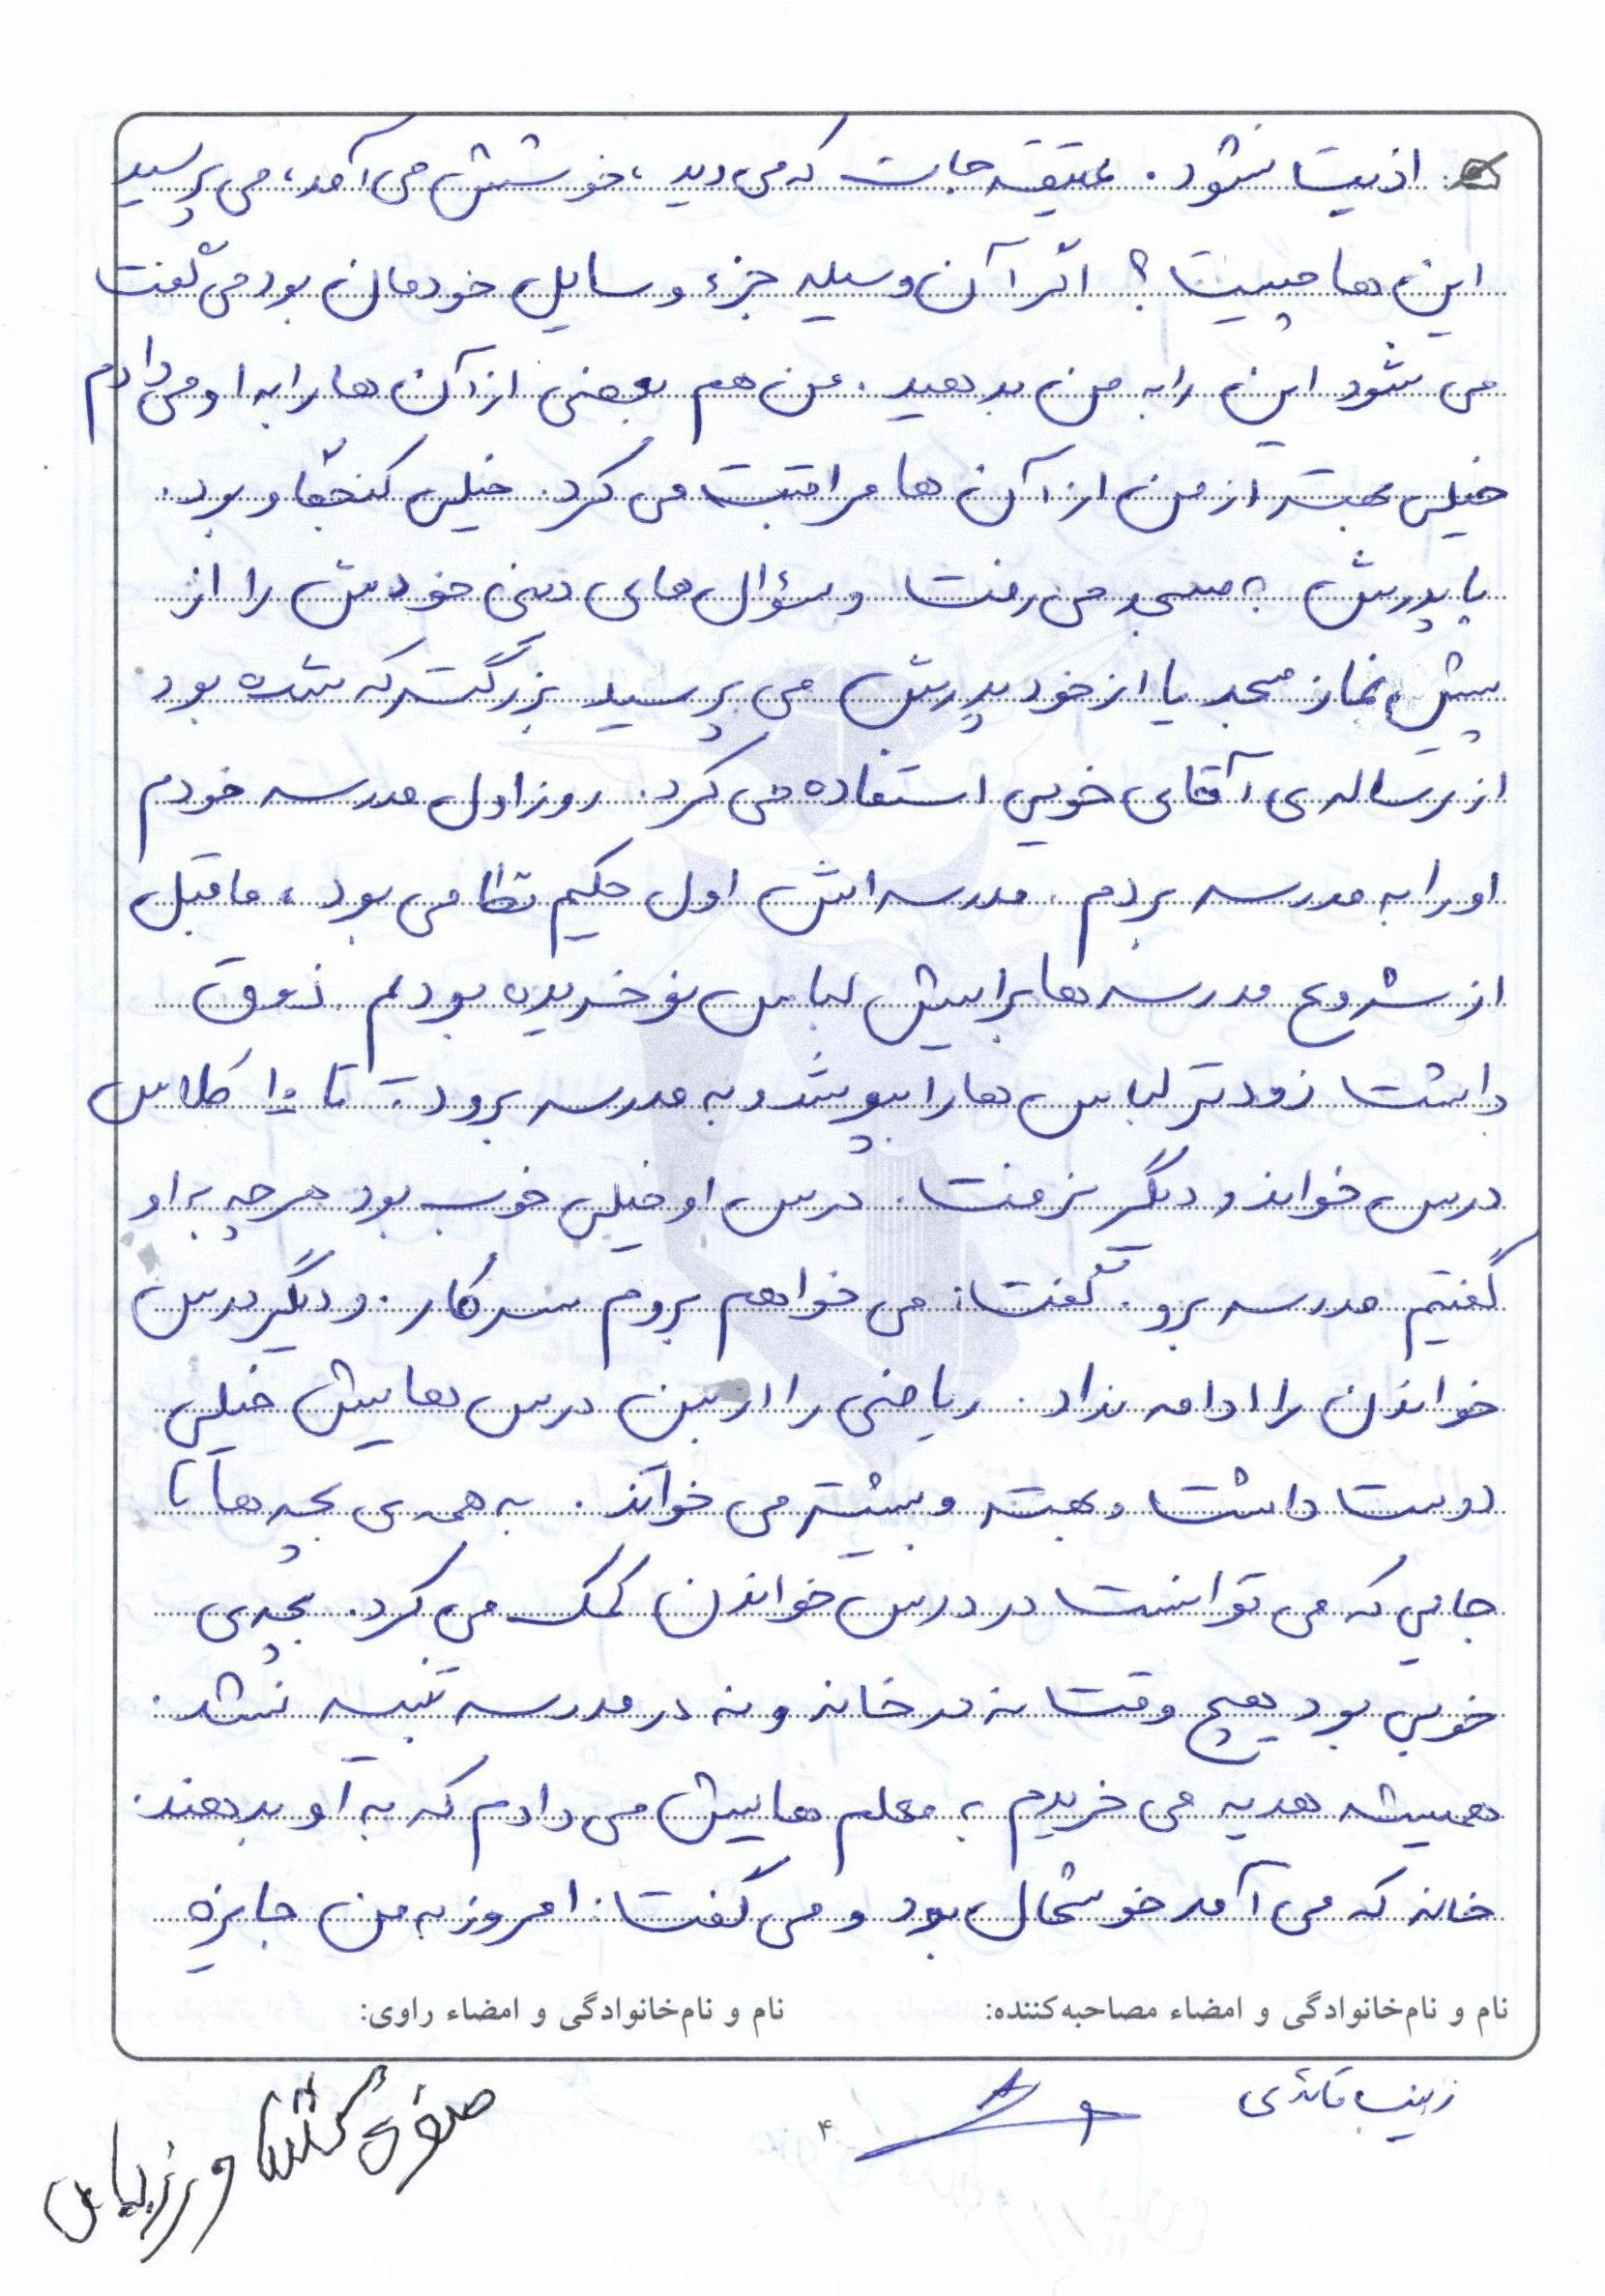 اذیت نشود. عتیقه جات که می دید، خوشش می آمد، می پرسید
این ها چیست؟ اگر آن وسیله جزء وسایل خودمان بود می گفت
می شود این را به من بدهید. من هم بعضی از آن ها را به او می دادم
خیلی بهتر از من از آن ها مراقبت می کرد. خیلی کنجکاو بود.
با پدرش به مسجد می رفت و سؤال های دینی خودش را از
پیش نماز مسجد یا از خود پدرش می پرسید بزرگتر که شده بود
از رساله ی آقای خویی استفاده می کرد. روز اول مدرسه خودم
او را به مدرسه بردم. مدرسه اش اول حکیم نظامی بود، ما قبل
از شروع مدرسه ها برایش لباس نو خریده بودیم. ذوق
داشت زودتر لباس ها را بپوشد و به مدرسه برود. تا ۱۰ کلاس
درس خواند و دیگر نرفت. درس او خیلی خوب بود هرچه به او
گفتیم مدرسه برو. گفت: می خواهم بروم سرکار. و دیگر درس
خواندن را ادامه نداد. ریاضی را از بین درس هایش خیلی
دوست داشت و بهتر و بیشتر می خواند. به همه ی بچه ها تا
جایی که می توانست در درس خواندن کمک می کرد. بچه ی
خوبی بود هیچ وقت نه در خانه و نه در مدرسه تنبیه نشد.
همیشه هدیه می خریدم به معلم هایش می دادم که به او بدهند.
خانه که می آمد خوشحال بود و می گفت: امروز به من جایزه
نام و نام‌خانوادگی و امضاء مصاحبه‌کننده: نام و نام‌خانوادگی و امضاء راوی:
زینب قائدی
۴
صغری کشاورز